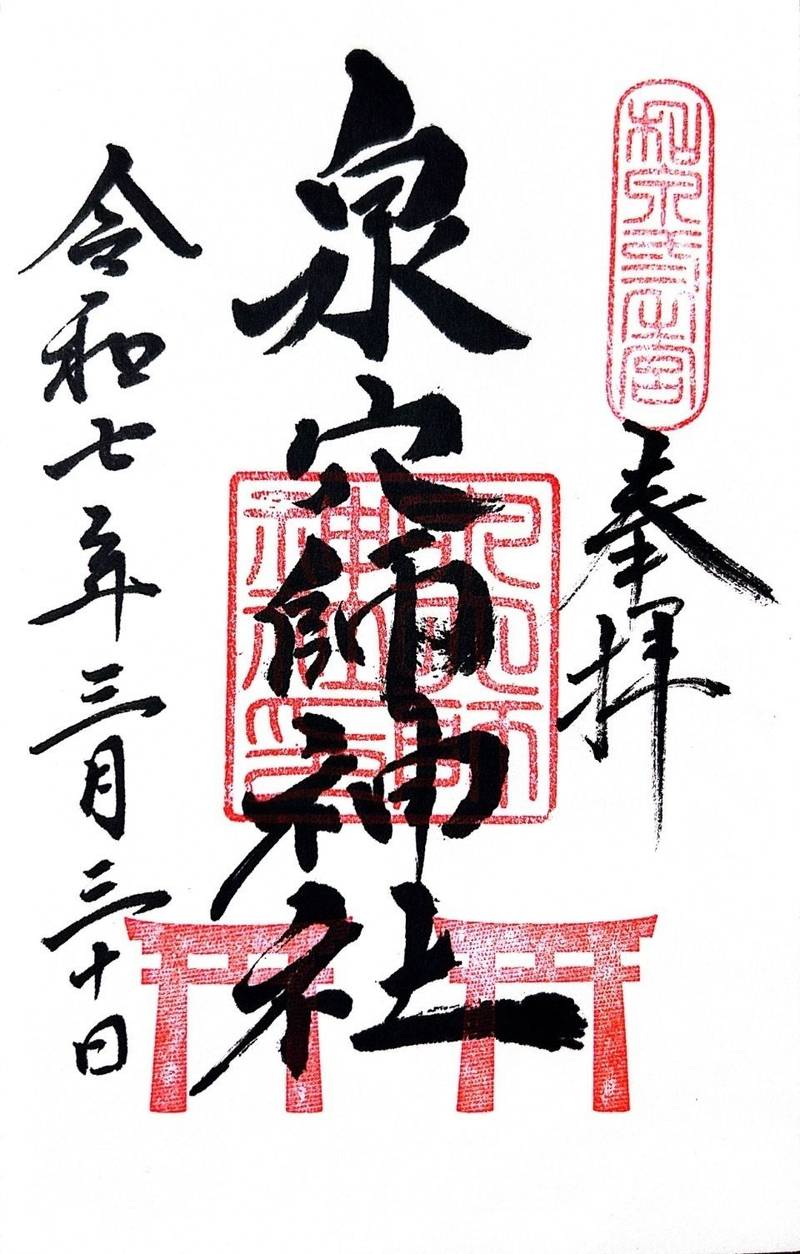 和泉弐之宮
奉拝
泉穴師神社
泉穴師神社印
令和七年三月三十日